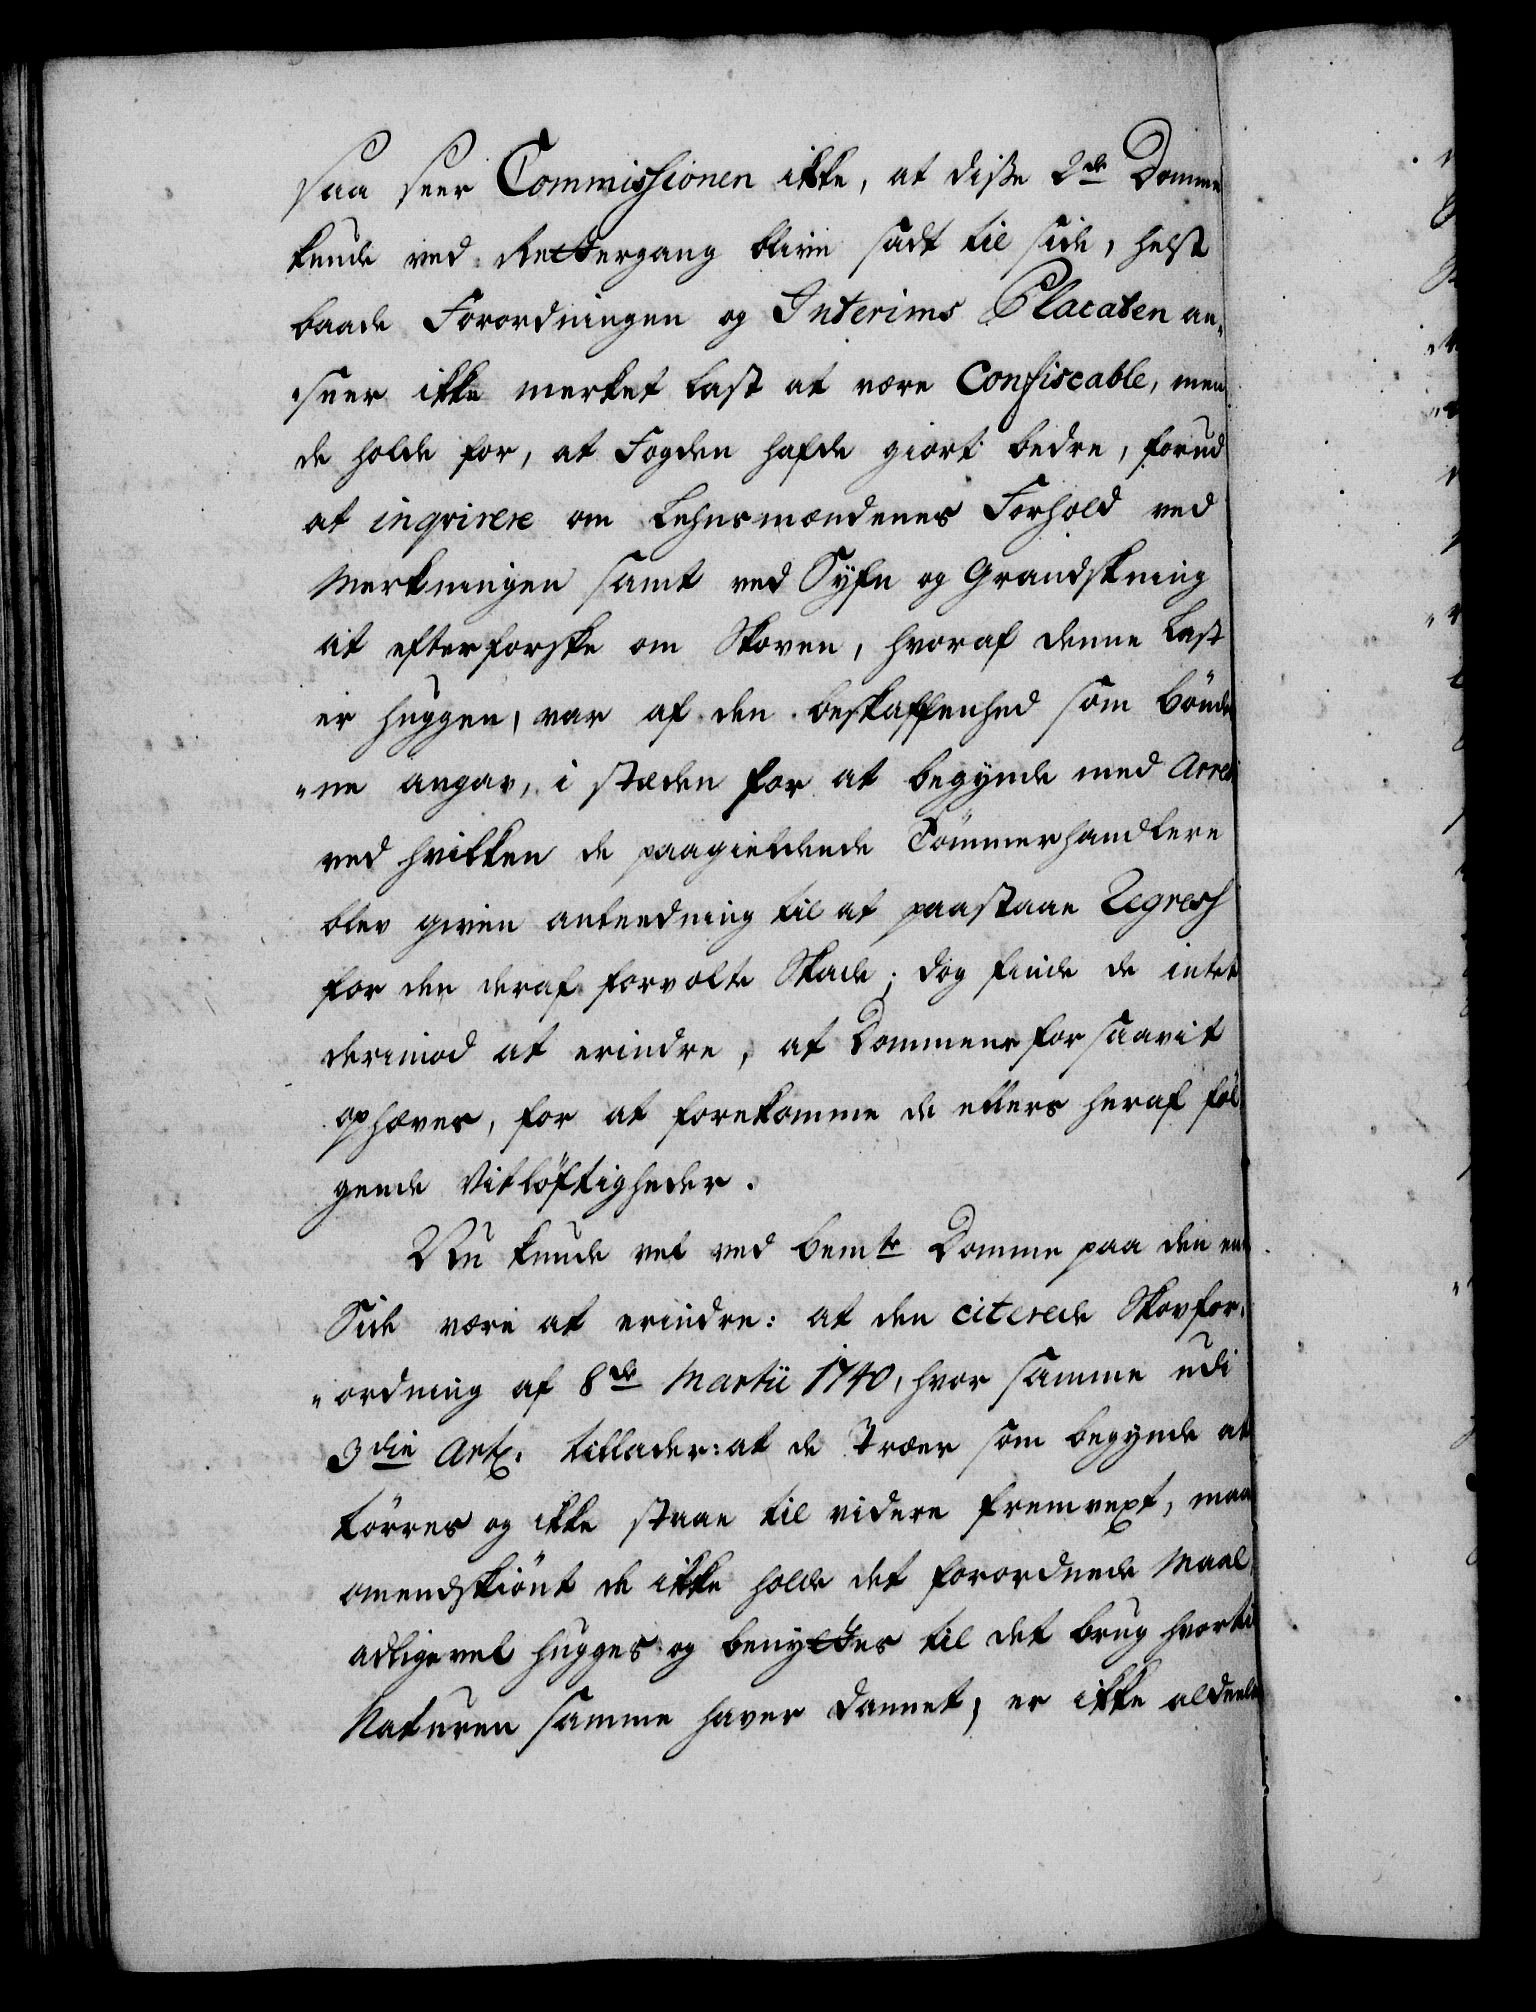 saa seer Commissionen ikke, at disse 2de Domme
kunde ved Rettergang blive sadt til side, helst
baade Forordningen og Interims Placaten an„
„seer ikke merket Last at være Confiscable, men
de holde for, at Fogden hafde giort bedre, forud
at inqvirere om Lehnsmændenes Forhold ved
Merkningen samt ved Syfn og Grandskning
at efterforske om Skoven, hvoraf denne Last
er huggen, var af den beskaffenhed som Bönder
„ne angav, i stæden for at begynde med Arrest
ved hvilken de paagieldende Tömmerhandlere
blev given anledning til at paastaae Regress
for den deraf forvolte Skade; dog finde de intet
derimod at erindre, at Dommene for saavit
ophæves, for at forekomme de ellers heraf föl„
gende Vitlöftigheder.
Nu kunde vel ved bemte Domme paa den ene
Side være at erindre: at den citerede Skovfor„
„ordning af 8de Martii 1740, hvor samme udi
3die Art. tillader: at de Træer som begynde at
törres og ikke staae til videre fremvext, maa
omendskiönt de ikke holde det forordnede Maal,
alligevel hugges og benyttes til det brug hvortil
Naturen samme haver dannet, er ikke aldeeles